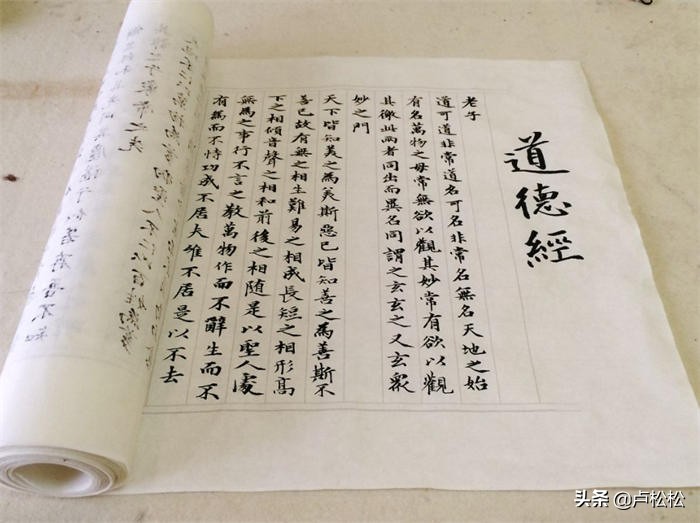 道德經
老子
道可道非常道名可名非常名無名天地之始
有名萬物之母常無欲以觀其妙常有欲以觀
其徼此兩者同出而異名同謂之玄玄之又玄眾
妙之門
天下皆知美之為美斯惡已皆知善之為善斯不
善已故有無之相生難易之相成長短之相形高
下之相傾音聲之相和前後之相隨是以聖人處
無為之事行不言之教萬物作而不辭生而不
有為而不恃功成不居夫唯不居是以不去
象帝之先
头条 @卢松松